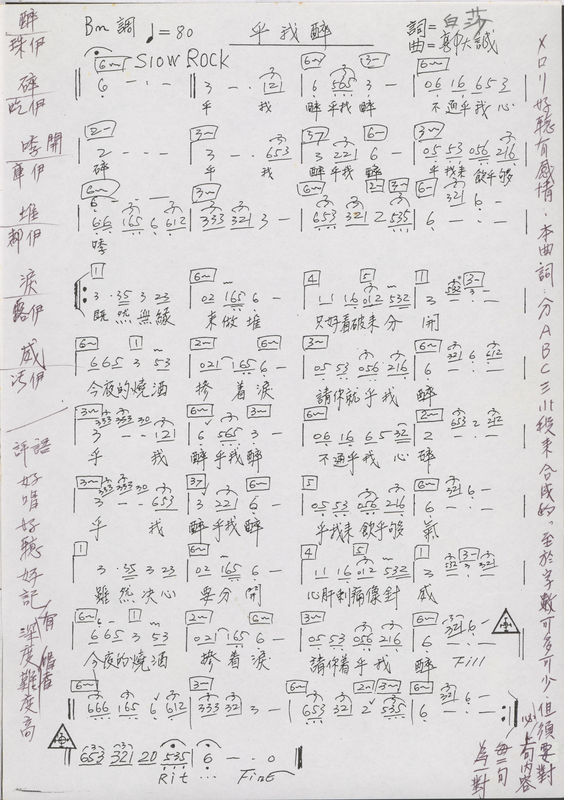 Bm 調 ♩=80 乎我醉 詞=白莎
Slow Rock
6 - - - 3 - · 121 6 565 3 - 06 16 653
乎 我 醉 乎我醉 不通乎我心
2 - - - 3 - · 653 3 221 6 - 05 53 056 216
碎 乎 我 醉 乎我醉 乎我來 飲乎夠
666 165 6 612 333 321 3 - 653 321 2 535 6 - - -
3 · 35 3 23 02 165 6 - 11 16 012 532 3
既然無緣 來做堆 只好看破來分 開
665 3 53 021 165 6 05 53 056 216 6
今夜的燒酒 摻着淚 請你就乎我 醉
3 - - 121 6 565 3 - 06 16 65 32 2
乎 我 醉 乎我醉 不通乎我 心 碎
3 - - 653 3 221 6 - 05 53 056 216 6
乎 我 醉 乎我醉 乎我來 飲乎夠 氣
3 · 35 3 23 02 165 6 11 16 012 532 3
雖然決心 要分開 心肝刺痛像針 威
665 3 53 021 165 6 - 05 53 056 216 6
今夜的燒酒 摻着淚 請你着乎我 醉 Fill
666 165 6 612 333 32 3 - 653 32 2 535 6 - · -
653 321 20 535 6 - · 0
Rit ... Fine
醉
珠伊
碎
開
堆
淚
評語
好唱好聽好記
深度難度高
好聽有感情,本曲詞,分ABC三小段來合成的。至於字數可多可少,但須要對
上句內容
每一句
為對